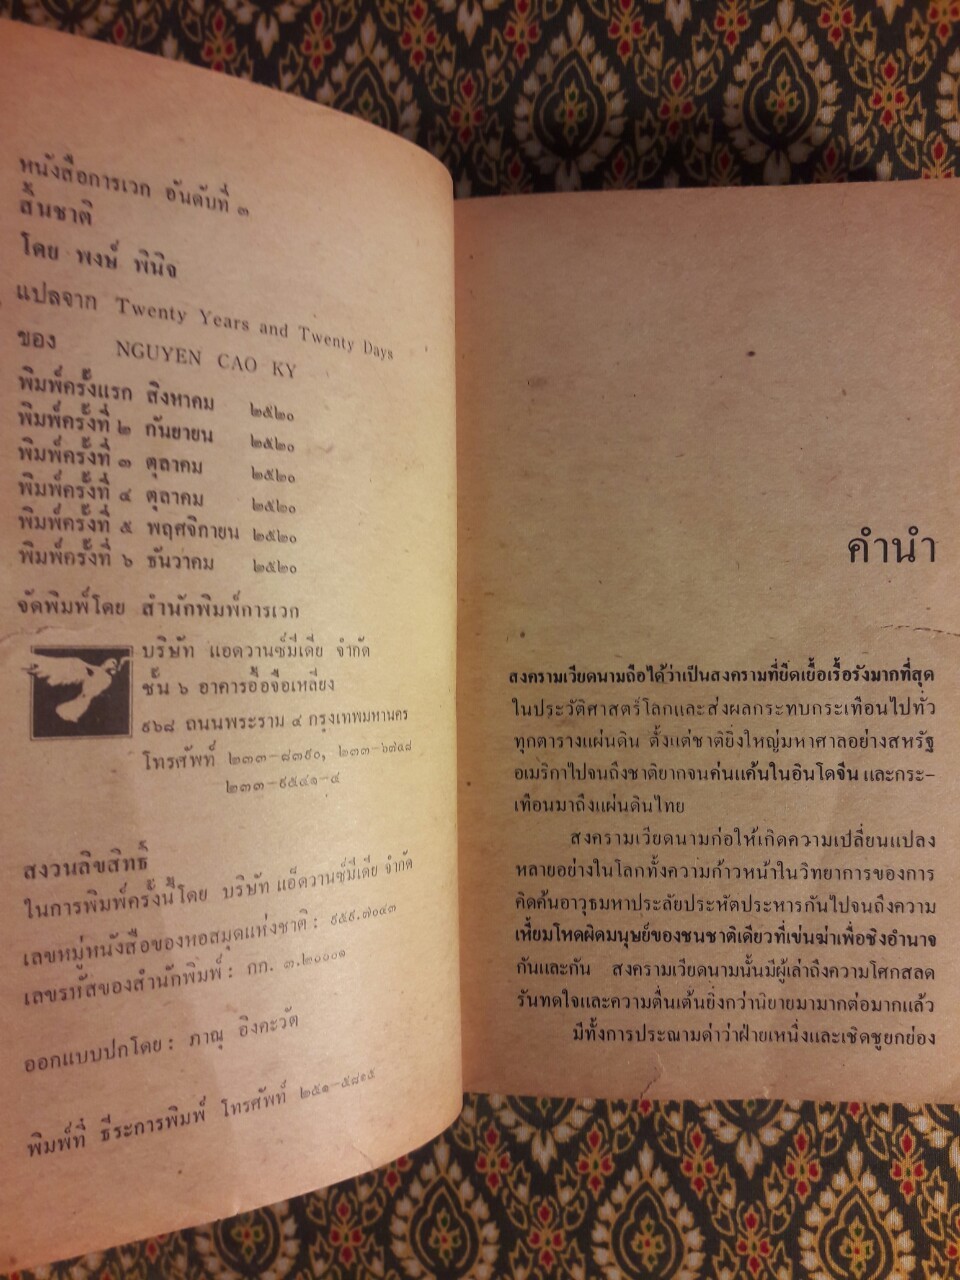 หนังสือการเวก อันดับที่ ๓
สิ้นชาติ
โดย พงษ์ พินิจ
แปลจาก Twenty Years and Twenty Days
ของ NGUYEN CAO KY
พิมพ์ครั้งแรก สิงหาคม ๒๕๒๐
พิมพ์ครั้งที่ ๒ กันยายน ๒๕๒๐
พิมพ์ครั้งที่ ๓ ตุลาคม ๒๕๒๐
พิมพ์ครั้งที่ ๔ ตุลาคม ๒๕๒๐
พิมพ์ครั้งที่ ๕ พฤศจิกายน ๒๕๒๐
พิมพ์ครั้งที่ ๖ ธันวาคม ๒๕๒๐
จัดพิมพ์โดย สำนักพิมพ์การเวก
บริษัท แอดวานซ์มีเดีย จำกัด
ชั้น ๖ อาคารอื้อจือเหลียง
๙๖๘ ถนนพระราม ๔ กรุงเทพมหานคร
โทรศัพท์ ๒๓๓-๘๓๙๐, ๒๓๓-๖๗๔๘
๒๓๓-๙๕๔๑-๔
สงวนลิขสิทธิ์
ในการพิมพ์ครั้งนี้โดย บริษัท แอ็ดวานซ์มีเดีย จำกัด
เลขหมู่หนังสือของหอสมุดแห่งชาติ : ๙๕๙.๗๐๔๓
เลขรหัสของสำนักพิมพ์ : กก. ๓.๒๐๐๐๑
ออกแบบปกโดย : ภาณุ อิงคะวัต
พิมพ์ที่ ธีระการพิมพ์ โทรศัพท์ ๒๕๑-๕๘๑๕
คำนำ
สงครามเวียดนามถือได้ว่าเป็นสงครามที่ยืดเยื้อเรื้อรังมากที่สุด
ในประวัติศาสตร์โลกและส่งผลกระทบกระเทือนไปทั่ว
ทุกตารางแผ่นดิน ตั้งแต่ชาติยิ่งใหญ่มหาศาลอย่างสหรัฐ
อเมริกาไปจนถึงชาติยากจนค่นแค้นในอินโดจีน และกระ-
เทือนมาถึงแผ่นดินไทย
สงครามเวียดนามก่อให้เกิดความเปลี่ยนแปลง
หลายอย่างในโลกทั้งความก้าวหน้าในวิทยาการของการ
คิดค้นอาวุธมหาประลัยประหัตประหารกันไปจนถึงความ
เหี้ยมโหดผิดมนุษย์ของชนชาติเดียวที่เข่นฆ่าเพื่อชิงอำนาจ
กันและกัน สงครามเวียดนามนั้นมีผู้เล่าถึงความโศกสลด
รันทดใจและความตื่นเต้นยิ่งกว่านิยายมามากต่อมากแล้ว
มีทั้งการประณามด่าว่าฝ่ายเหนึ่งและเชิดชูยกย่อง